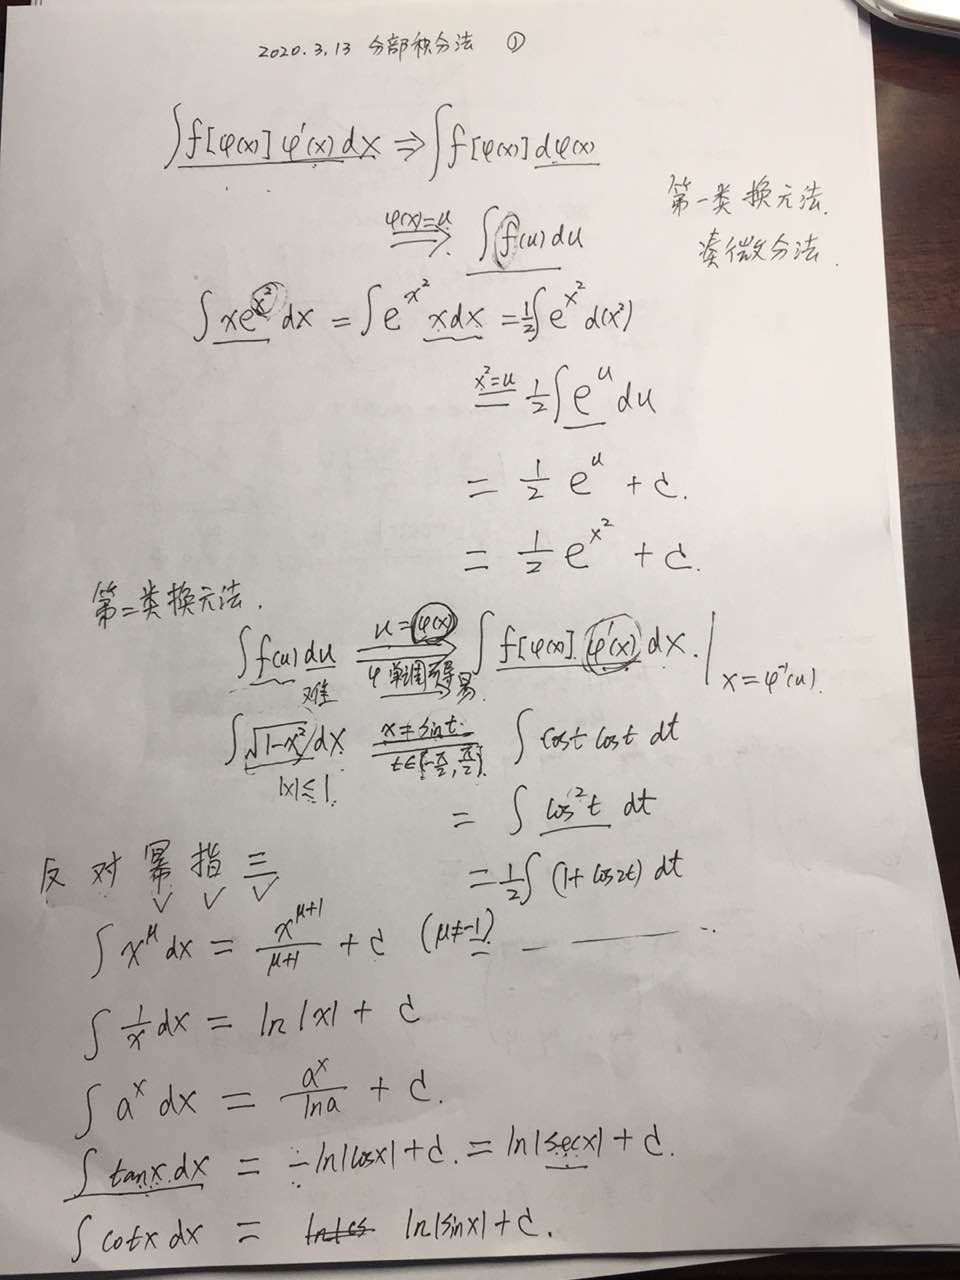 2020.3.13 分部积分法 ①
∫f[φ(x)]φ'(x)dx ⇒ ∫f[φ(x)]dφ(x)
第一类换元法.
φ(x)=u ⇒ ∫f(u)du
凑微分法.
∫xe^{x²}dx = ∫e^{x²}xdx = ½∫e^{x²}d(x²)
x²=u = ½∫e^u du
= ½ e^u + C.
= ½ e^{x²} + C.
第二类换元法.
∫f(u)du u=φ(x) φ单调可导 ∫f[φ(x)]φ'(x)dx.| x=φ⁻¹(u).
难 易
∫√(1-x²)dx x=sint. t∈[-π/2,π/2] ∫cost cost dt
|x|≤1.
= ∫cos²t dt
反对幂指三
= ½∫(1+cos2t)dt
∫x^μ dx = x^{μ+1}/(μ+1) + C (μ≠-1)
∫1/x dx = ln|x| + C
∫a^x dx = a^x/lna + C.
∫tanx.dx = -ln|cosx|+C. = ln|secx|+C.
∫cotx dx = ln|sinx|+C.